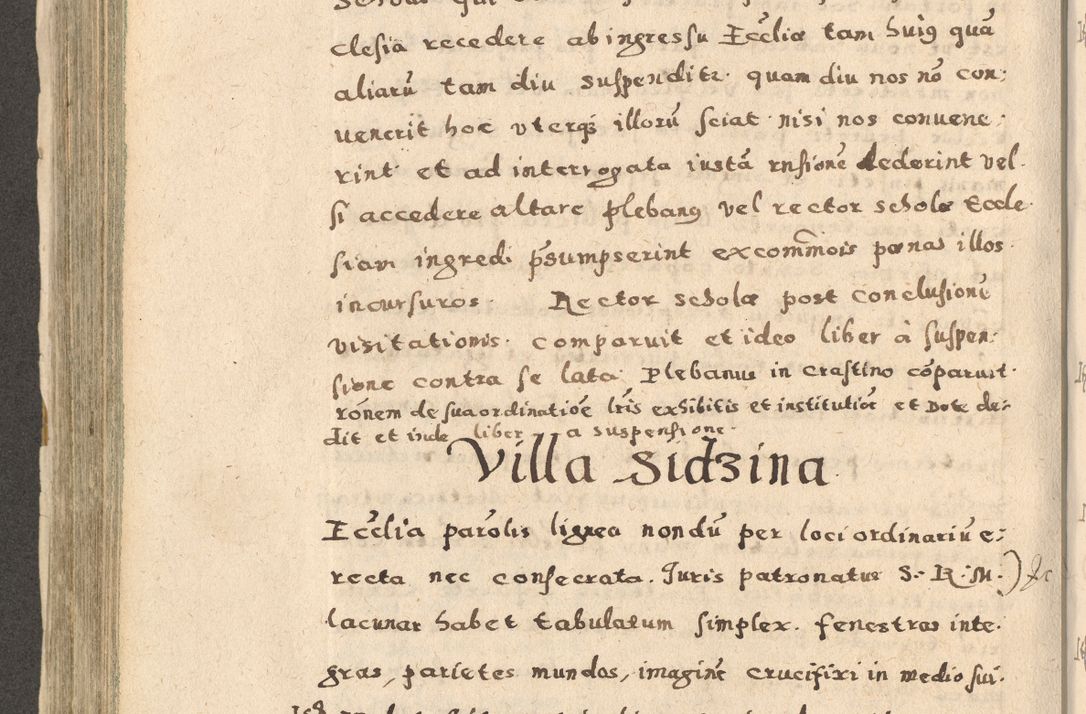 clesia recedere ab ingressu Ecclia tam huiq quā
aliarū tam diu suspendite. quam diu nos nō con:
uenerit hoc vterq3 illorū sciat nisi nos conuene:
rint et ad interrogata iustā rnsionē dederint vel.
si accedere altare plebanq vel rector scholæ Eccle
siam ingredi p̄sumpserint excommōis pœnas illos
incursuros. Rector scholæ post conclusionē
visitationis. comparuit et ideo liber à suspen:
sione contra se lata. Plebanus in crastino cōparuit.
rōnem de sua ordinatiōe lr̄is exhibitis et institutiōe et Dote de:
dit et inde liber a suspensione.
Villa Sidzina
Eccl̄ia parōlis lignea nondū per loci ordinariū e:
recta nec consecrata. Juris patronatus S. R. M.)
lacunar habet tabulatum simplex. fenestras inte.
gras, parietes mundos, imaginē crucifixi in medio sui.